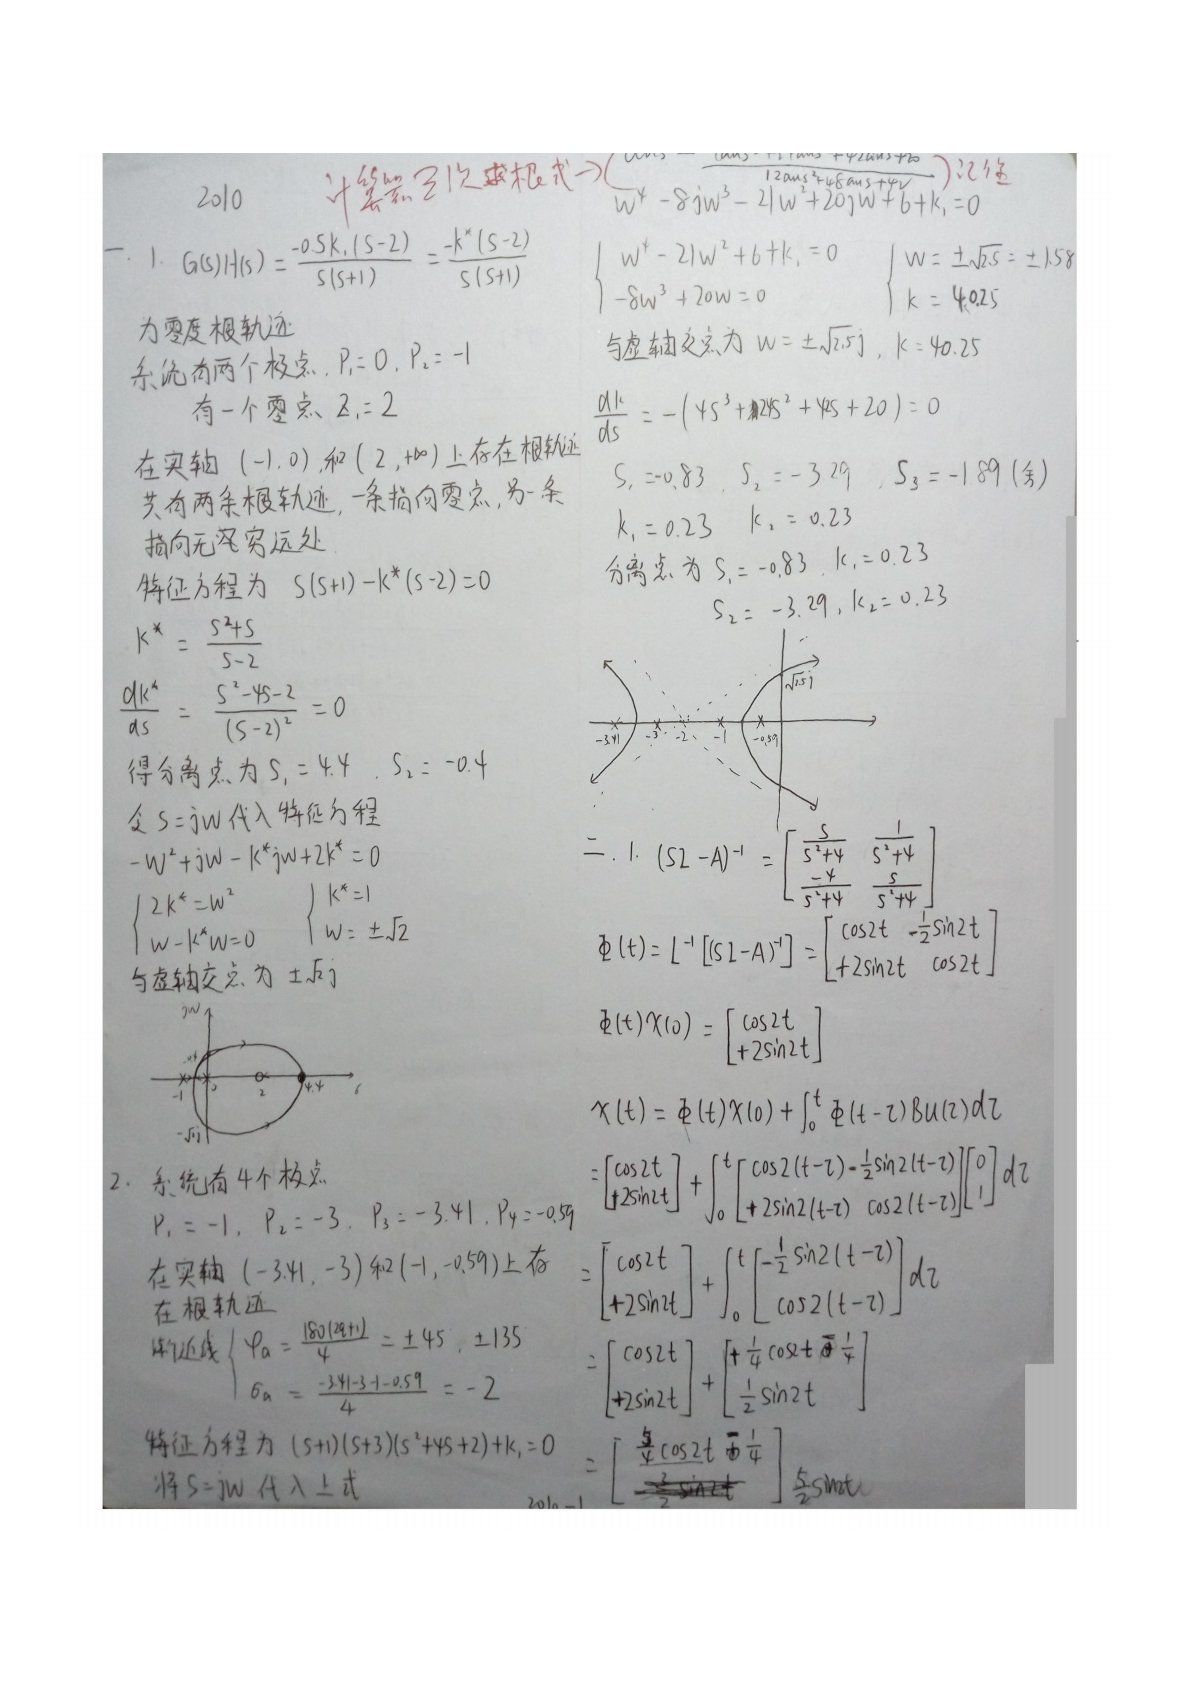 2010
计算器三次求根式→( 12ans²+48ans+42 )记住
一. 1. G(s)H(s) = -0.5k₁(s-2) / s(s+1) = -k*(s-2) / s(s+1)
为零度根轨迹
系统有两个极点, P₁=0, P₂=-1
有一个零点 Z₁=2
在实轴 (-1.0),和(2,+∞)上存在根轨迹
共有两条根轨迹,一条指向零点,另一条
指向无穷远处.
特征方程为 s(s+1)-k*(s-2)=0
k* = s²+s / s-2
dk*/ds = s²-4s-2 / (s-2)² = 0
得分离点为 S₁=4.4 , S₂=-0.4
令 S=jw代入特征方程
-w²+jw-k*jw+2k*=0
{ 2k*=w² { k*=1
w-k*w=0 w=±√2
与虚轴交点为 ±√2j
jw
-0.4
-1 0 2 4.4 σ
-√2j
2. 系统有4个极点
P₁=-1, P₂=-3, P₃=-3.41, P4=-0.59
在实轴 (-3.41, -3)和(-1,-0.59)上存
在根轨迹
渐近线 { φa = 180(2q+1) / 4 = ±45, ±135
σa = -3.41-3-1-0.59 / 4 = -2
特征方程为 (s+1)(s+3)(s²+4s+2)+k₁=0
将S=jw 代入上式
w⁴-8jw³-21w²+20jw+6+k₁=0
{ w⁴-21w²+6+k₁=0 { w=±√2.5=±1.58
-8w³+20w=0 k=40.25
与虚轴交点为 w=±√2.5j, k=40.25
dk/ds = -(4s³+24s²+42s+20)=0
S₁=-0.83, S₂=-3.29, S₃=-1.89(舍)
k₁=0.23 k₂=0.23
分离点为 S₁=-0.83, k₁=0.23
S₂=-3.29, k₂=0.23
√2.5j
-3.41 -3 -2 -1 -0.59
二. 1. (SI-A)⁻¹ = [ s/s²+4 1/s²+4
-4/s²+4 s/s²+4 ]
Φ(t)=L⁻¹[(SI-A)⁻¹] = [ cos2t -½sin2t
+2sin2t cos2t ]
Φ(t)X(0) = [ cos2t
+2sin2t ]
X(t)=Φ(t)X(0)+∫₀ᵗ Φ(t-τ)Bu(τ)dτ
= [ cos2t +2sin2t ] + ∫₀ᵗ [ cos2(t-τ) -½sin2(t-τ)
+2sin2(t-τ) cos2(t-τ) ] [ 0 1 ] dτ
= [ cos2t +2sin2t ] + ∫₀ᵗ [ -½sin2(t-τ)
cos2(t-τ) ] dτ
= [ cos2t +2sin2t ] + [ +¼cos2t - ¼
½sin2t ]
= [ 5/4 cos2t - ¼ ]
5/2 sin2t
2010-1